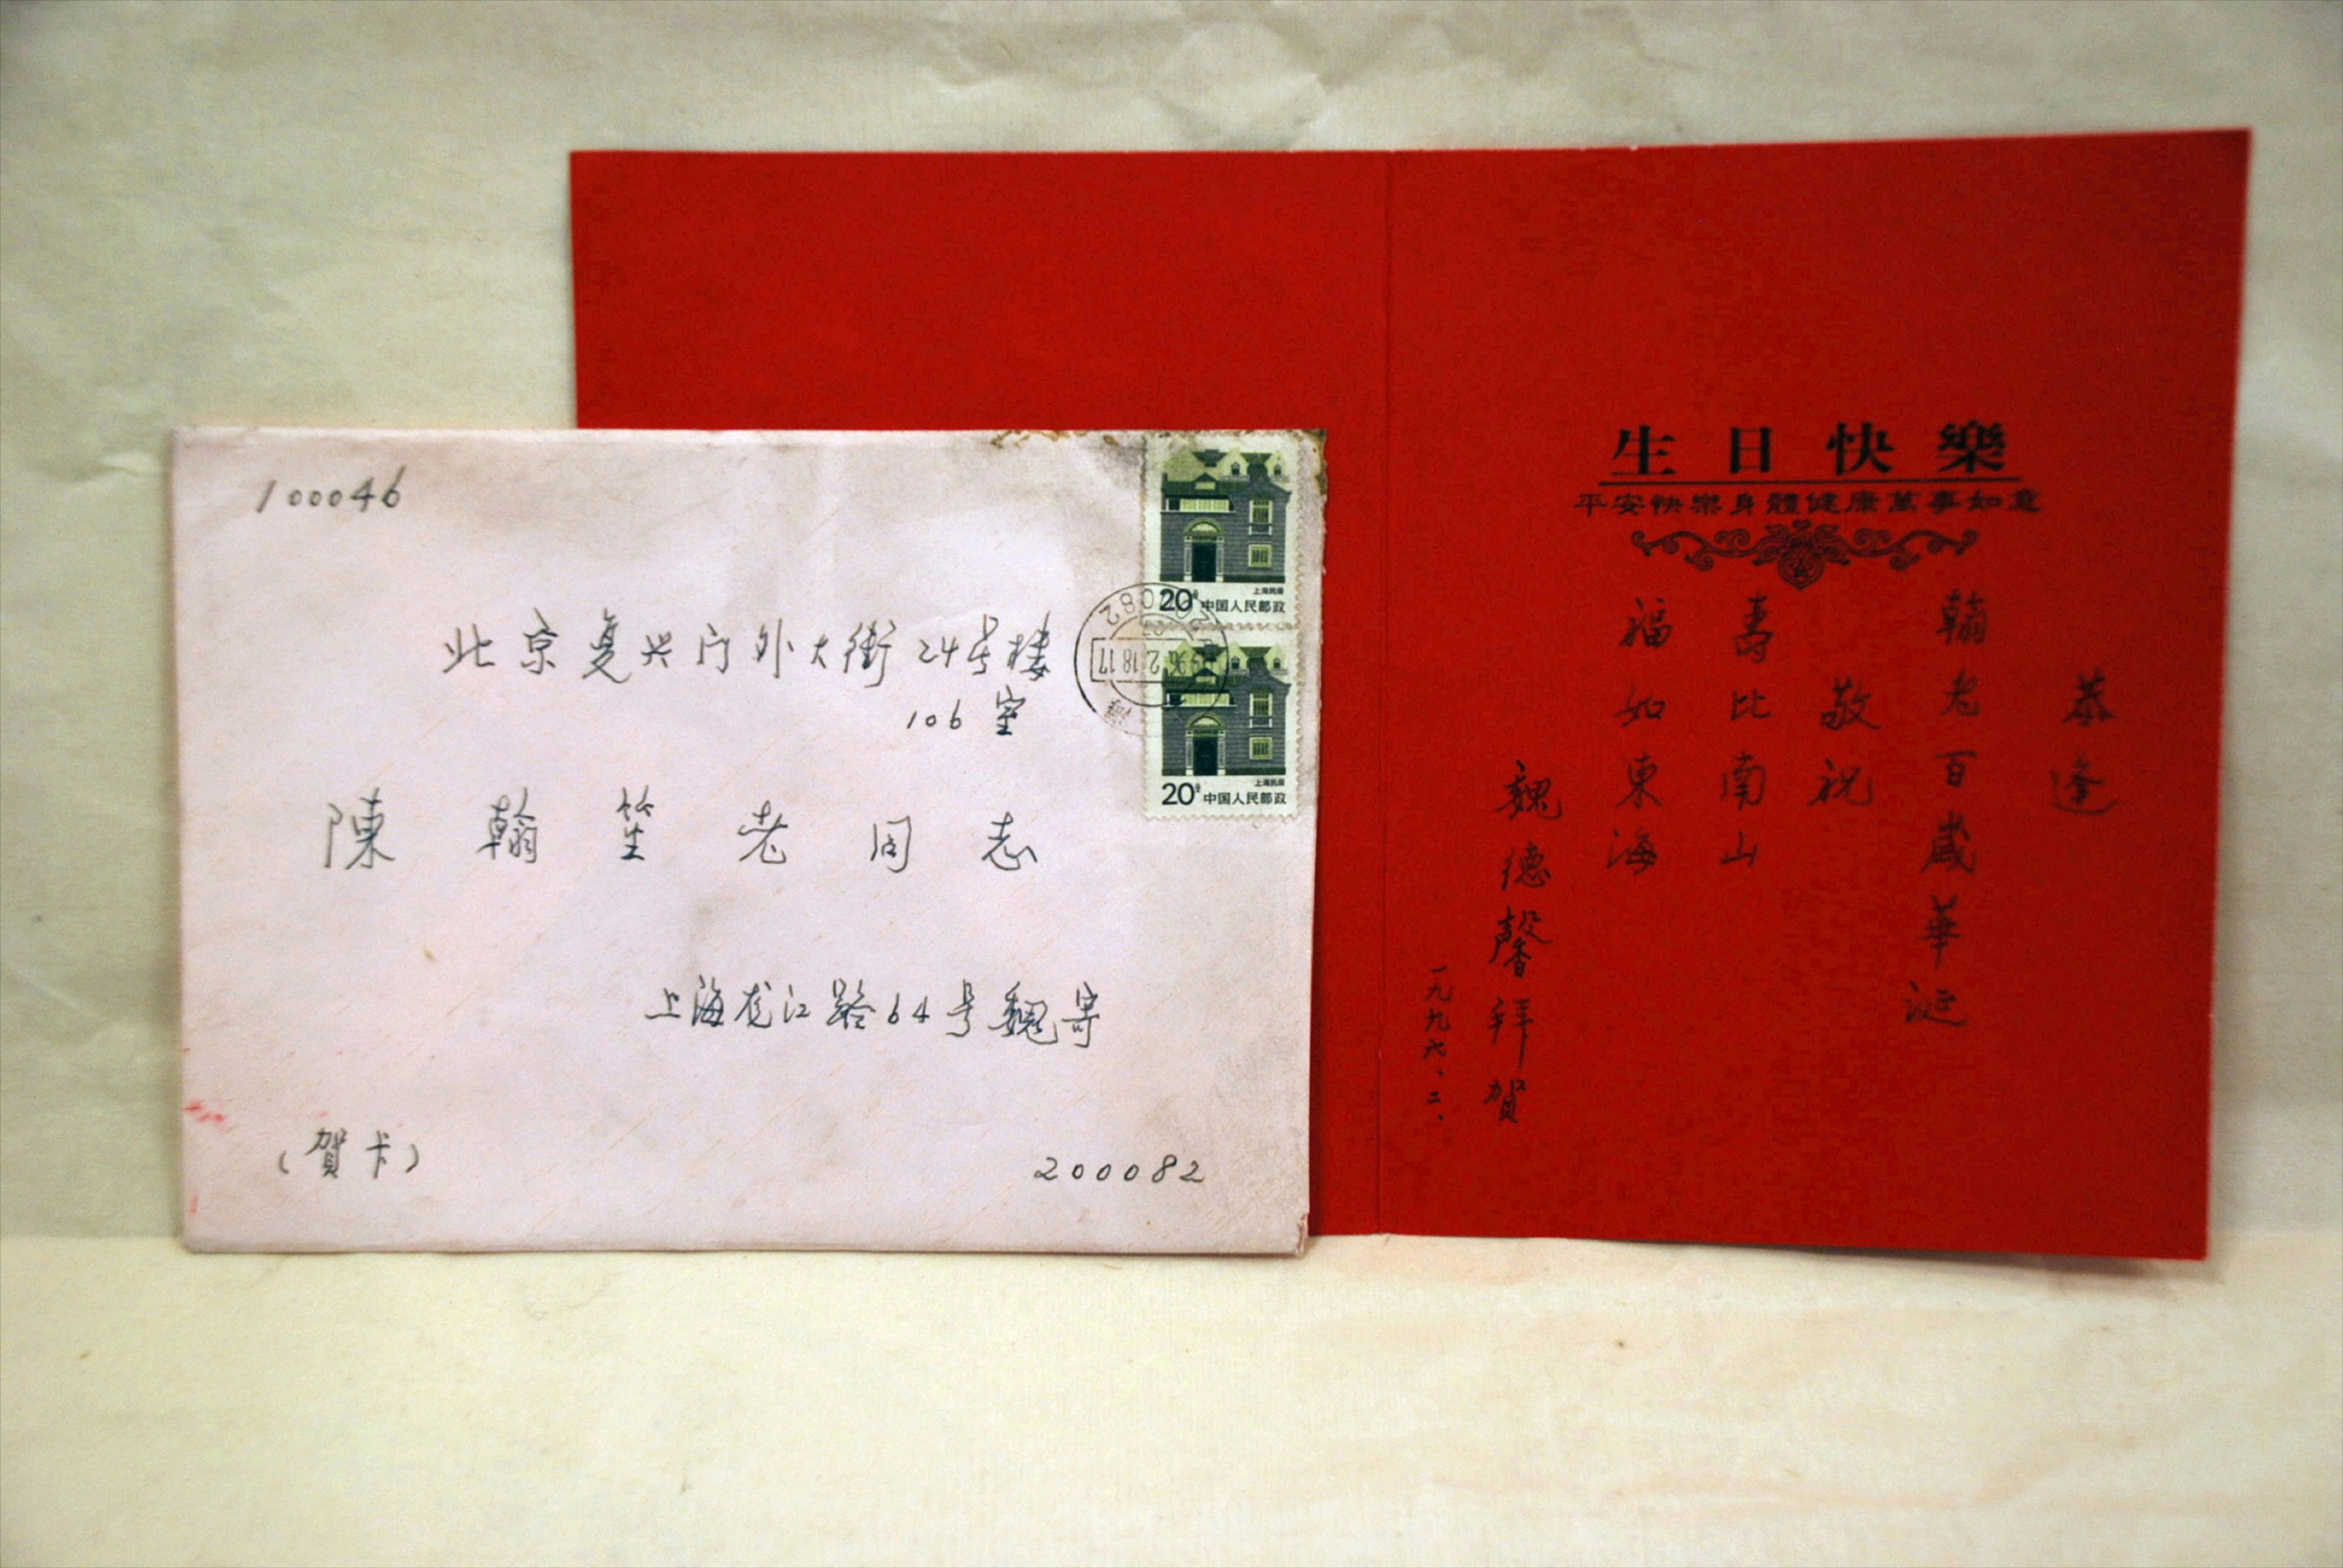 100046
北京复兴门外大街24号楼
106室
陳翰笙老同志
上海龙江路64号魏寄
(賀卡)
200082
上海民居
20分 中国人民邮政
上海民居
20分 中国人民邮政
200082
1996.2.18.17
生日快樂
平安快樂身體健康萬事如意
恭逢
翰老百歲華诞
敬祝
壽比南山
福如東海
魏德馨拜賀
一九九六、二、